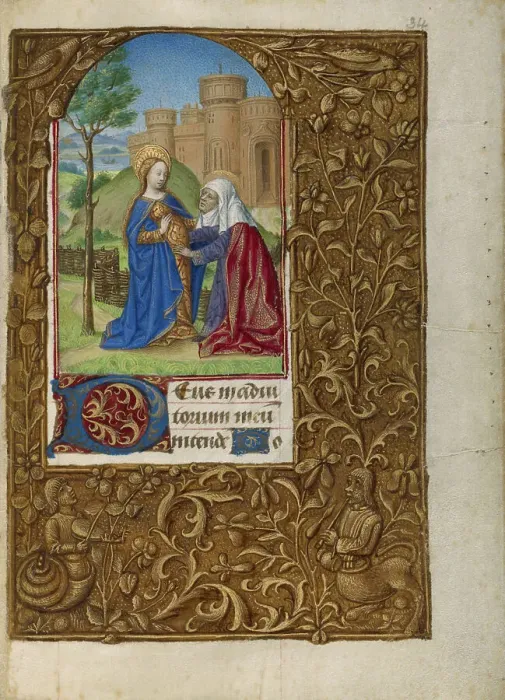 34
Deus in adiu
torium meū
intende Do